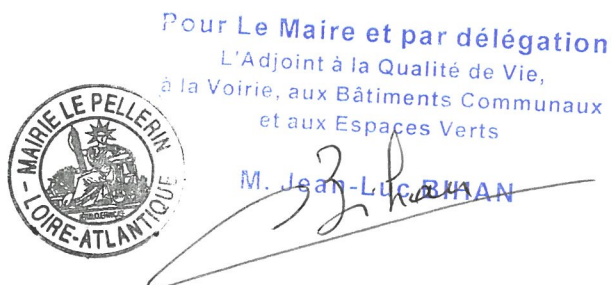 Pour Le Maire et par délégation
L'Adjoint à la Qualité de Vie,
à la Voirie, aux Bâtiments Communaux
et aux Espaces Verts
M. Jean-Luc BIHAN
MAIRIE LE PELLERIN
- LOIRE-ATLANTIQUE -